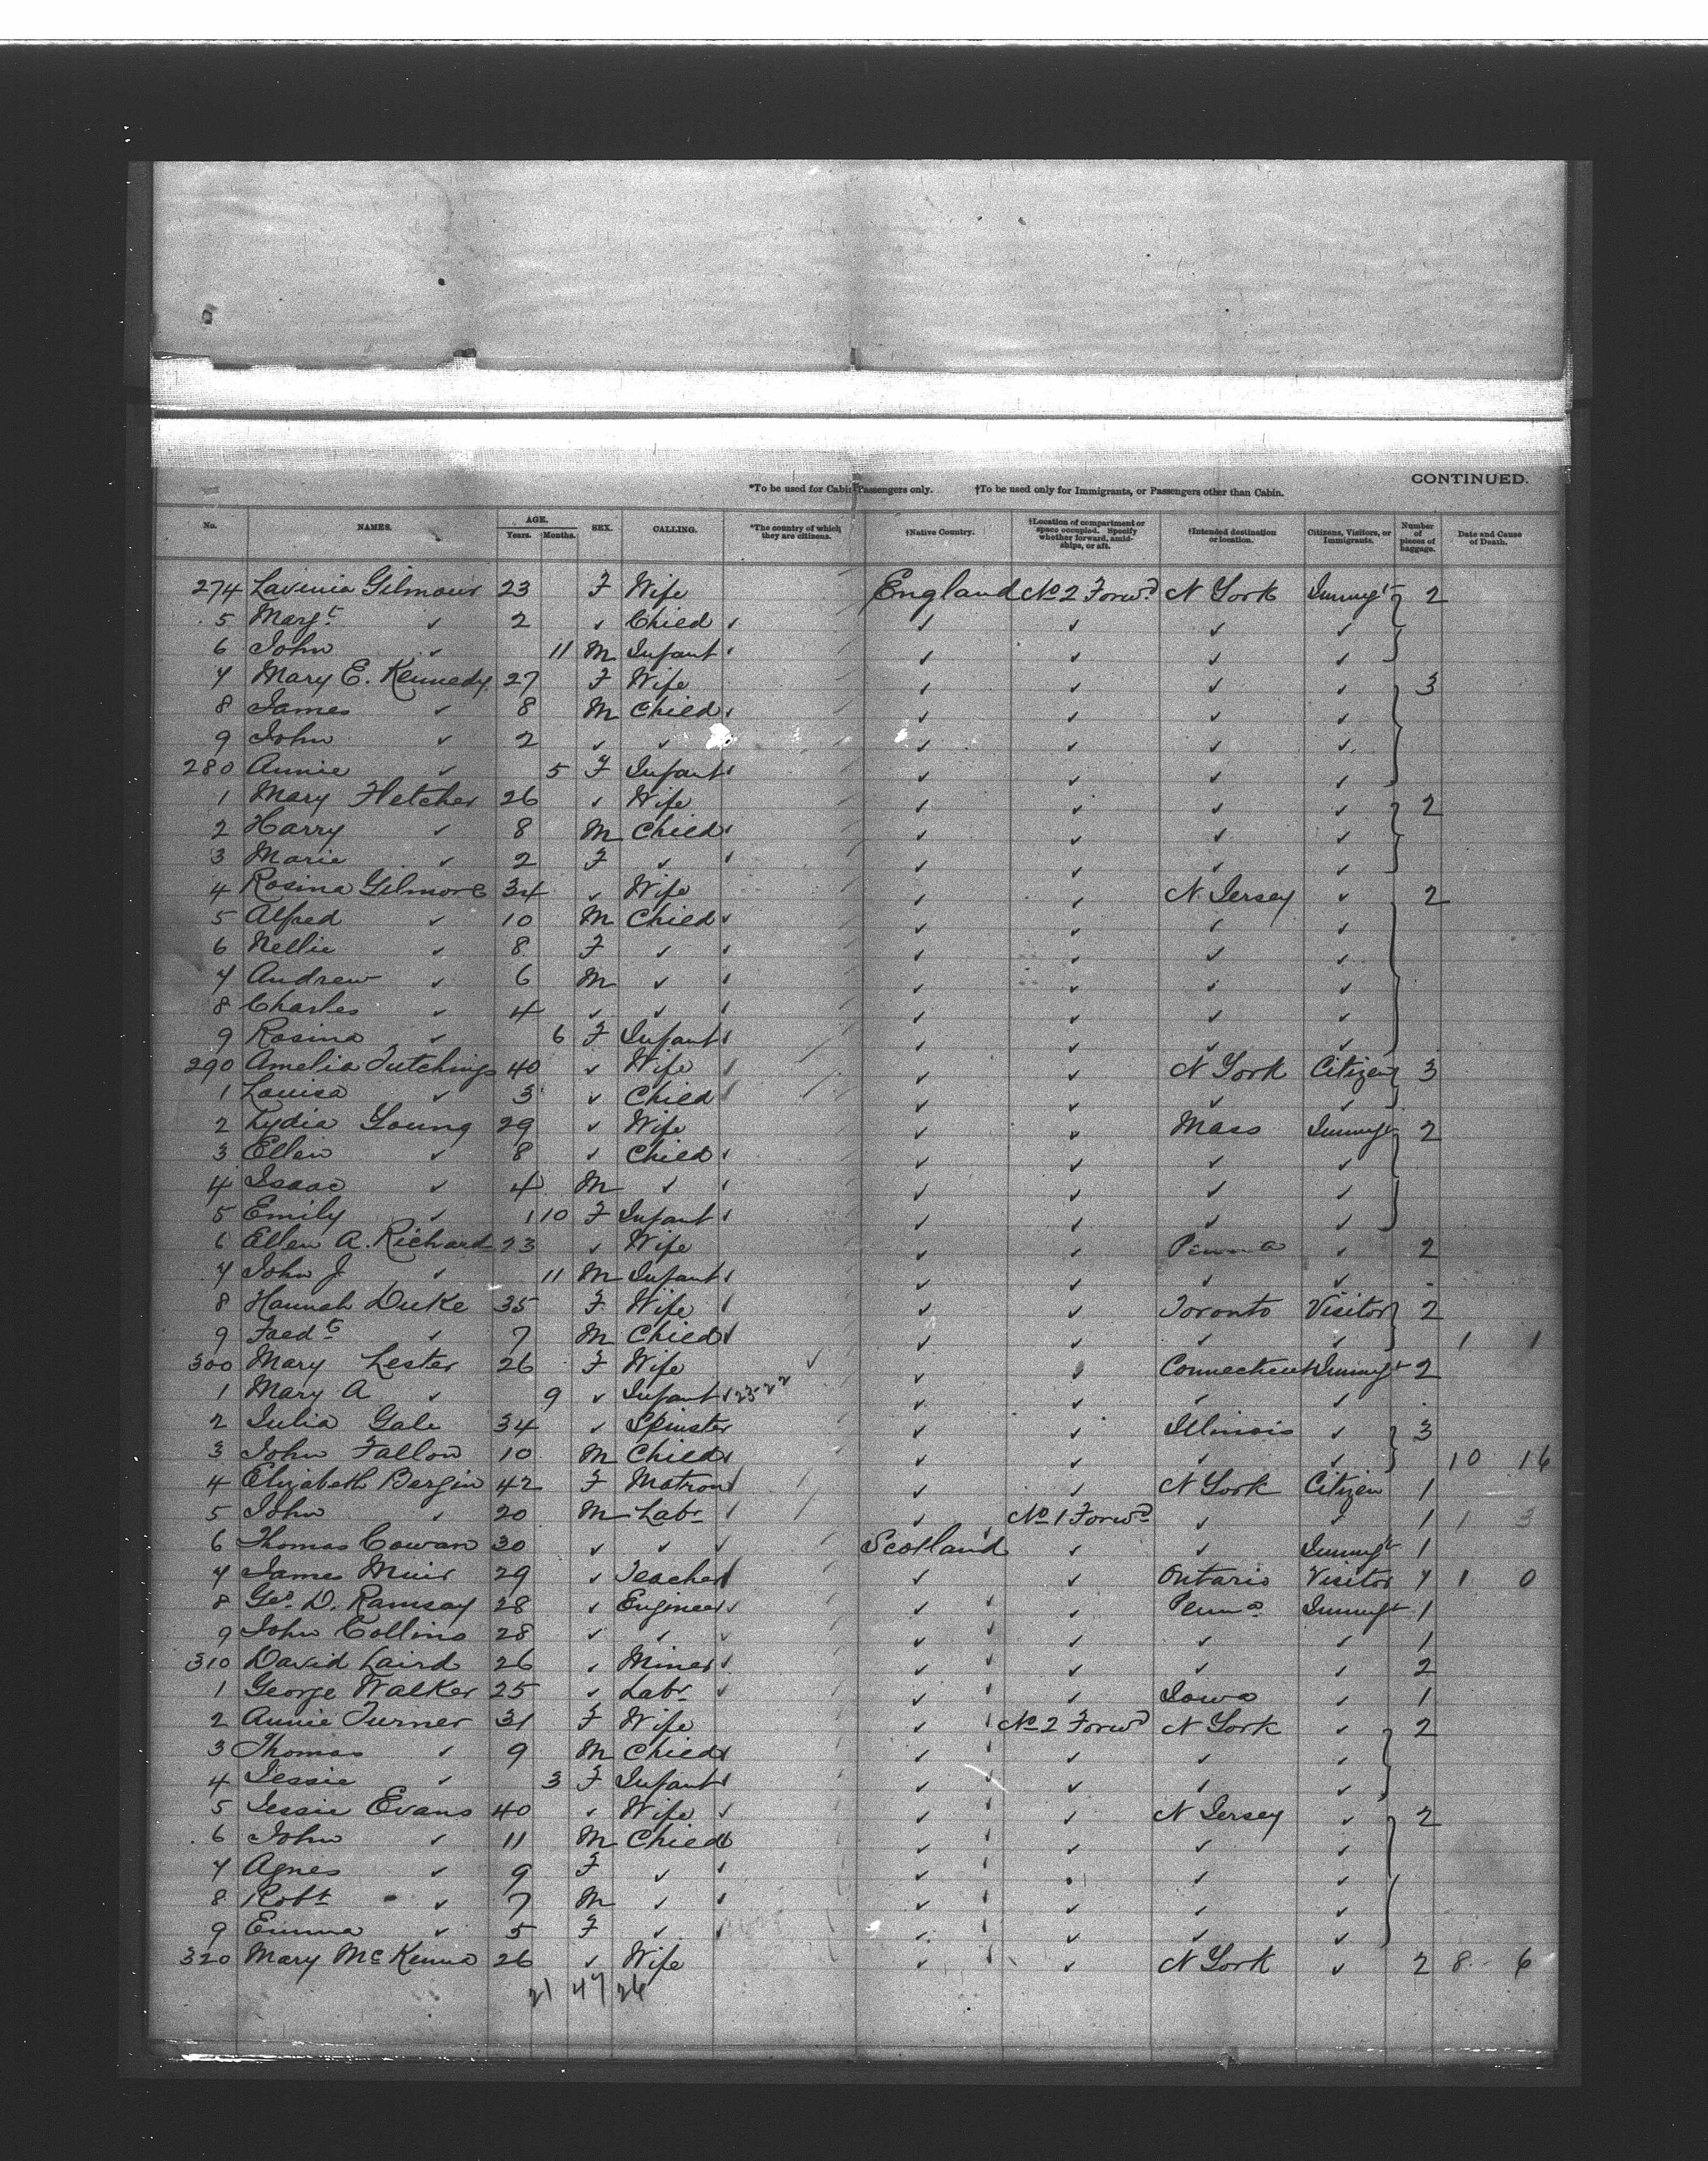 CONTINUED.
*To be used for Cabin Passengers only. †To be used only for Immigrants, or Passengers other than Cabin.
No. NAMES. AGE. Years. Months. SEX. CALLING. *The country of which they are citizens. †Native Country. †Location of compartment or space occupied. Specify whether forward, amidships, or aft. †Intended destination or location. Citizens, Visitors, or Immigrants. Number of pieces of baggage. Date and Cause of Death.
274 Lavinia Gilmour 23 F Wife England No 2 Forwd N York Immigt 2
5 Margt ✓ 2 ✓ Child ✓ ✓ ✓ ✓
6 John ✓ 11 M Infant ✓ ✓ ✓ ✓
7 Mary E. Kennedy 27 F Wife ✓ ✓ ✓ ✓ 3
8 James ✓ 8 M Child ✓ ✓ ✓ ✓
9 John ✓ 2 ✓ ✓ ✓ ✓ ✓ ✓
280 Annie ✓ 5 F Infant ✓ ✓ ✓ ✓
1 Mary Fletcher 26 ✓ Wife ✓ ✓ ✓ ✓ 2
2 Harry ✓ 8 M Child ✓ ✓ ✓ ✓
3 Marie ✓ 2 F ✓ ✓ ✓ ✓ ✓
4 Rosina Gilmore 34 ✓ Wife ✓ ✓ N Jersey ✓ 2
5 Alfred ✓ 10 M Child ✓ ✓ ✓ ✓
6 Nellie ✓ 8 F ✓ ✓ ✓ ✓ ✓
7 Andrew ✓ 6 M ✓ ✓ ✓ ✓ ✓
8 Charles ✓ 4 ✓ ✓ ✓ ✓ ✓ ✓
9 Rosina ✓ 6 F Infant ✓ ✓ ✓ ✓
290 Amelia Tutchings 40 ✓ Wife ✓ ✓ N York Citizen 3
1 Louisa ✓ 3 ✓ Child ✓ ✓ ✓ ✓
2 Lydia Young 29 ✓ Wife ✓ ✓ Mass Immigt 2
3 Ellen ✓ 8 ✓ Child ✓ ✓ ✓ ✓
4 Isaac ✓ 4 M ✓ ✓ ✓ ✓ ✓
5 Emily ✓ 1 10 F Infant ✓ ✓ ✓ ✓
6 Ellen A. Richard 23 ✓ Wife ✓ ✓ Penna ✓ 2
7 John J ✓ 11 M Infant ✓ ✓ ✓ ✓
8 Hannah Duke 35 F Wife ✓ ✓ Toronto Visitor 2
9 Fredk ✓ 7 M Child ✓ ✓ ✓ ✓ 1 1
300 Mary Lester 26 F Wife ✓ ✓ ✓ Connecticut Immigt 2
1 Mary A ✓ 9 ✓ Infant ✓ ✓ ✓ ✓
2 Julia Gale 34 ✓ Spinster ✓ ✓ Illinois ✓ 3
3 John Fallow 10 M Child ✓ ✓ ✓ ✓ 10 16
4 Elizabeth Bergin 42 F Matron ✓ ✓ N York Citizen 1
5 John ✓ 20 M Labr ✓ No 1 Forwd ✓ ✓ 1 1 3
6 Thomas Cowan 30 ✓ ✓ Scotland ✓ ✓ Immigt 1
7 James Muir 29 ✓ Teacher ✓ ✓ Ontario Visitor 4 1 0
8 Geo. D. Ramsay 28 ✓ Engineer ✓ ✓ Penna Immigt 1
9 John Collins 28 ✓ ✓ ✓ ✓ ✓ ✓ 1
310 David Laird 26 ✓ Miner ✓ ✓ ✓ ✓ 2
1 George Walker 25 ✓ Labr ✓ ✓ Iowa ✓ 1
2 Annie Turner 31 F Wife ✓ No 2 Forwd N York ✓ 2
3 Thomas ✓ 9 M Child ✓ ✓ ✓ ✓
4 Jessie ✓ 3 F Infant ✓ ✓ ✓ ✓
5 Jessie Evans 40 ✓ Wife ✓ ✓ N Jersey ✓ 2
6 John ✓ 11 M Child ✓ ✓ ✓ ✓
7 Agnes ✓ 9 F ✓ ✓ ✓ ✓ ✓
8 Robt ✓ 7 M ✓ ✓ ✓ ✓ ✓
9 Emma ✓ 5 F ✓ ✓ ✓ ✓ ✓
320 Mary McKenna 26 ✓ Wife ✓ ✓ N York ✓ 2 8 6
21 47 26